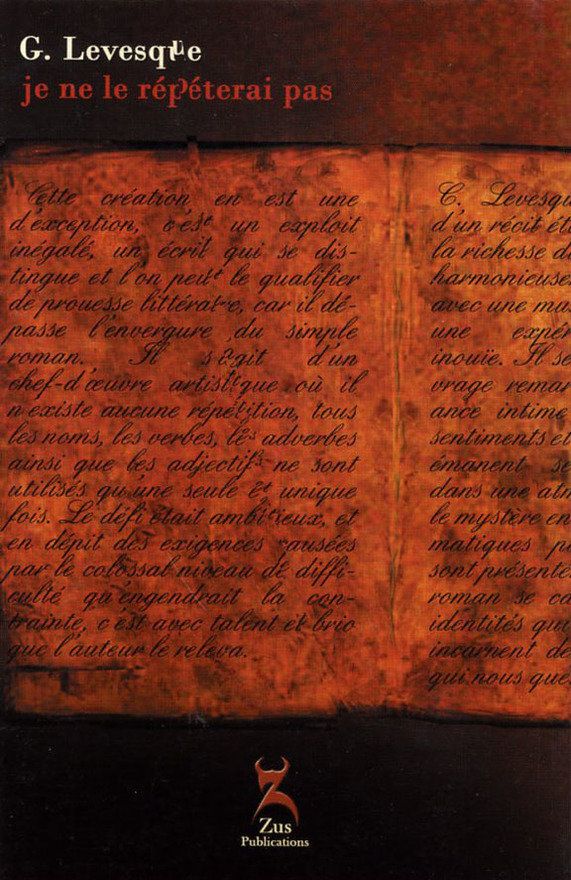 G. Levesque
je ne le répéterai pas
Cette création en est une
d'exception, c'est un exploit
inégalé, un écrit qui se dis-
tingue et l'on peut le qualifier
de prouesse littéraire, car il dé-
passe l'envergure du simple
roman. Il s'agit d'un
chef-d'œuvre artistique où il
n'existe aucune répétition, tous
les noms, les verbes, les adverbes
ainsi que les adjectifs ne sont
utilisés qu'une seule et unique
fois. Le défi était ambitieux, et
en dépit des exigences causées
par le colossal niveau de diffi-
culté qu'engendrait la con-
trainte, c'est avec talent et brio
que l'auteur le releva.
G. Levesqu
d'un récit
la richesse
harmonieuse
avec une
une expér
inouïe. Il se
vrage remar
ance intime
sentiments et
émanent
dans une
le mystère en
matiques
sont présenté
roman se
identités qui
incarnent de
qui nous que
Zus
Publications